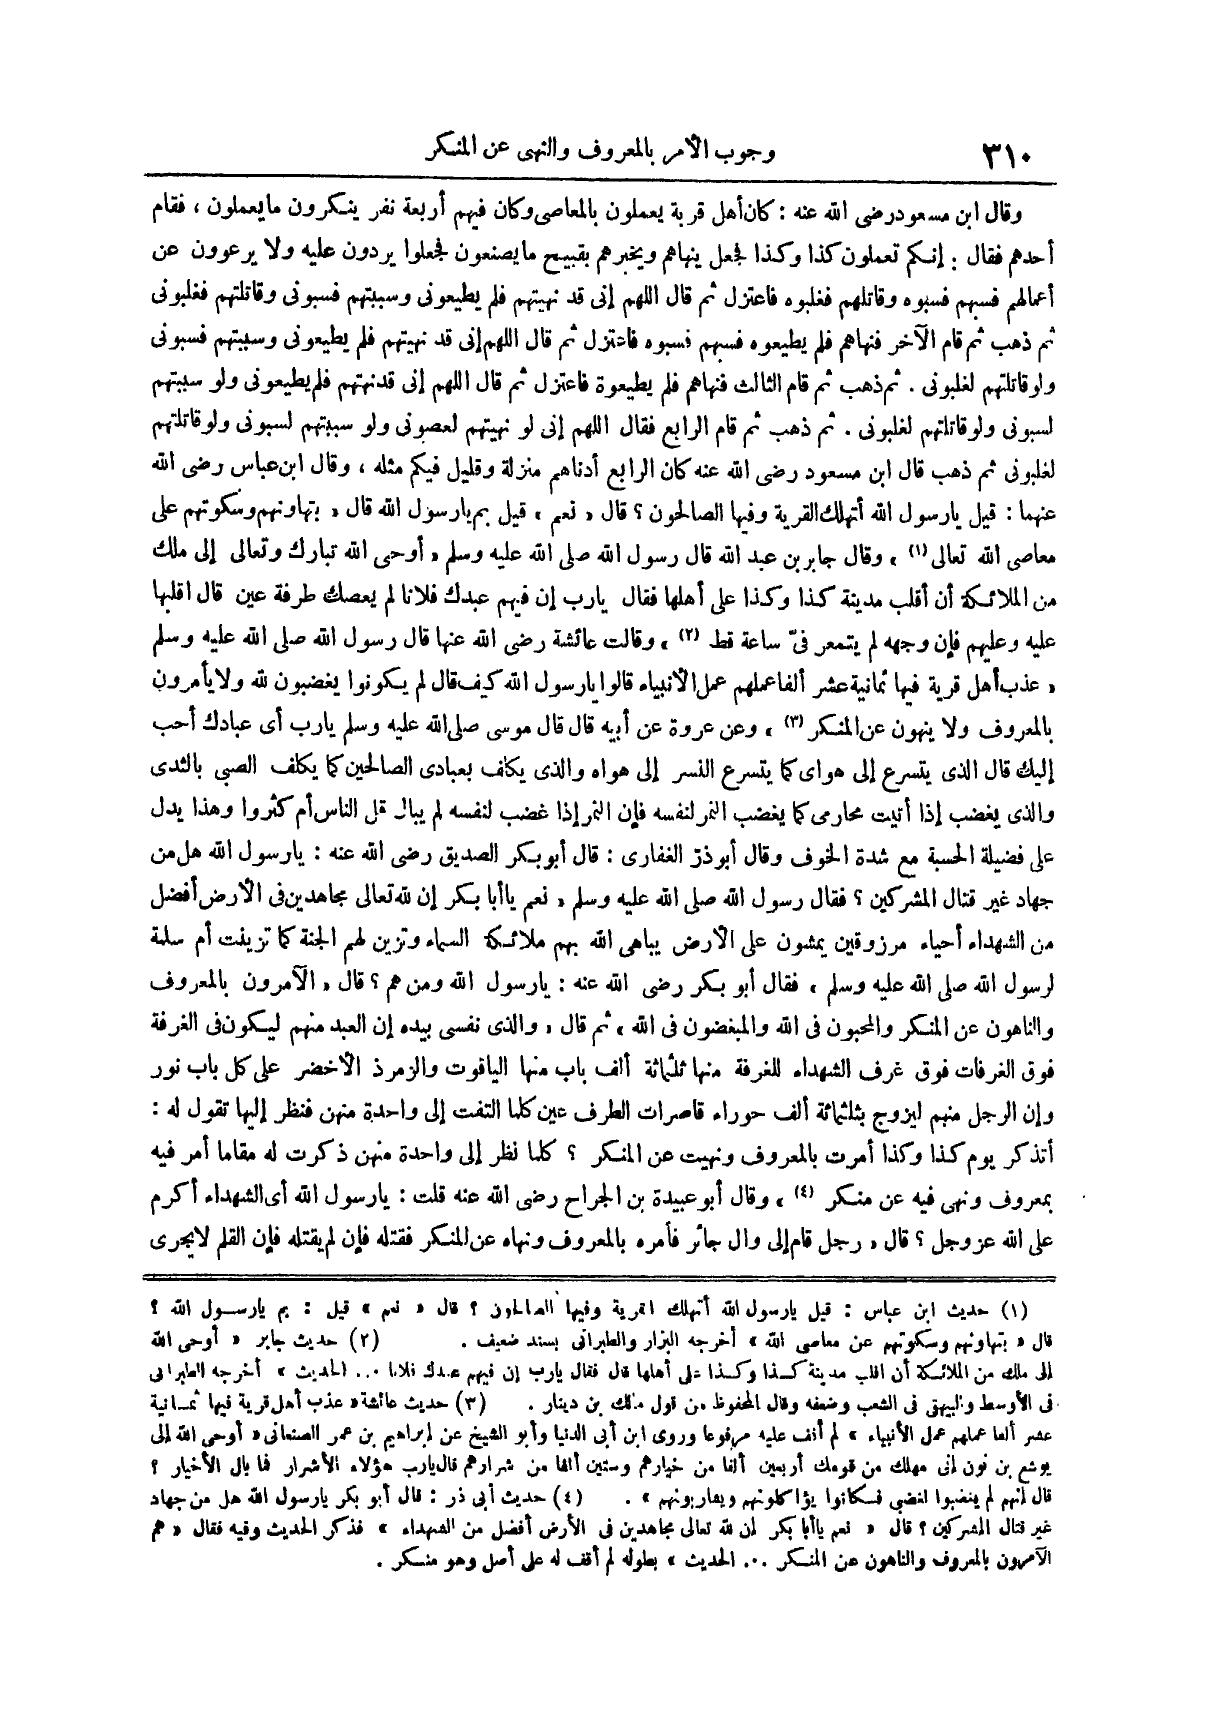 ٣١٠
وجوب الأمر بالمعروف والنهى عن المنكر
وقال ابن مسعود رضى الله عنه : كان أهل قرية يعملون بالمعاصى وكان فيهم أربعة نفر ينكرون ما يعملون ، فقام
أحدهم فقال : إنكم تعملون كذا وكذا فجعل ينهاهم ويخبرهم بقبيح ما يصنعون فجعلوا يردون عليه ولا يرعوون عن
أعمالهم فسبهم فسبوه وقاتلهم فغلبوه فاعتزل ثم قال اللهم إنى قد نهيتهم فلم يطيعونى وسببتهم فسبونى وقاتلتهم فغلبونى
ثم ذهب ثم قام الآخر فنهاهم فلم يطيعوه فسبهم فسبوه فاعتزل ثم قال اللهم إنى قد نهيتهم فلم يطيعونى وسببتهم فسبونى
ولو قاتلتهم لغلبونى . ثم ذهب ثم قام الثالث فنهاهم فلم يطيعوة فاعتزل ثم قال اللهم إنى قد نهتهم فلم يطيعونى ولو سببتهم
لسبونى ولو قاتلتهم لغلبونى . ثم ذهب ثم قام الرابع فقال اللهم إنى لو نهيتهم لعصونى ولو سببتهم لسبونى ولو قاتلتهم
لغلبونى ثم ذهب قال ابن مسعود رضى الله عنه كان الرابع أدناهم منزلة وقليل فيكم مثله ، وقال ابن عباس رضى الله
عنهما : قيل يارسول الله أتهلك القرية وفيها الصالحون ؟ قال « نعم » قيل بم يارسول الله قال « بتهاونهم وسكوتهم على
معاصى الله تعالى (١) » وقال جابر بن عبد الله قال رسول الله صلى الله عليه وسلم « أوحى الله تبارك وتعالى إلى ملك
من الملائكة أن أقلب مدينة كذا وكذا على أهلها فقال يارب إن فيهم عبدك فلانا لم يعصك طرفة عين قال اقلبها
عليه وعليهم فإن وجهه لم يتمعر فىّ ساعة قط (٢) » وقالت عائشة رضى الله عنها قال رسول الله صلى الله عليه وسلم
« عذب أهل قرية فيها ثمانية عشر ألفا عملهم عمل الأنبياء قالوا يارسول الله كيف قال لم يكونوا يغضبون لله ولا يأمرون
بالمعروف ولا ينهون عن المنكر (٣) » وعن عروة عن أبيه قال قال موسى صلى الله عليه وسلم يارب أى عبادك أحب
إليك قال الذى يتسرع إلى هواى كما يتسرع النسر إلى هواه والذى يكلف بعبادى الصالحين كما يكلف الصبي بالثدى
والذى يغضب إذا أتيت محارمى كما يغضب النمر لنفسه فإن النمر إذا غضب لنفسه لم يبال قل الناس أم كثروا وهذا يدل
على فضيلة الحسبة مع شدة الخوف وقال أبو ذرّ الغفارى : قال أبو بكر الصديق رضى الله عنه : يارسول الله هل من
جهاد غير قتال المشركين ؟ فقال رسول الله صلى الله عليه وسلم « نعم ياأبا بكر إن لله تعالى مجاهدين فى الأرض أفضل
من الشهداء أحياء مرزوقين يمشون على الأرض يباهى الله بهم ملائكة السماء وتزين لهم الجنة كما تزينت أم سلمة
لرسول الله صلى الله عليه وسلم » فقال أبو بكر رضى الله عنه : يارسول الله ومن هم ؟ قال « الآمرون بالمعروف
والناهون عن المنكر والمحبون فى الله والمبغضون فى الله » ثم قال « والذى نفسى بيده إن العبد منهم ليكون فى الغرفة
فوق الغرفات فوق غرف الشهداء للغرفة منها ثلثمائة ألف باب منها الياقوت والزمرذ الأخضر على كل باب نور
وإن الرجل منهم ليزوج بثلثمائة ألف حوراء قاصرات الطرف عين كلما التفت إلى واحدة منهن فنظر إليها تقول له :
أتذكر يوم كذا وكذا أمرت بالمعروف ونهيت عن المنكر ؟ كلما نظر إلى واحدة منهن ذكرت له مقاما أمر فيه
بمعروف ونهى فيه عن منكر (٤) » وقال أبو عبيدة بن الجراح رضى الله عنه قلت : يارسول الله أى الشهداء أكرم
على الله عز وجل ؟ قال « رجل قام إلى وال جائر فأمره بالمعروف ونهاه عن المنكر فقتله فإن لم يقتله فإن القلم لا يجرى
(١) حديث ابن عباس : قيل يارسول الله أتهلك القرية وفيها الصالحون ؟ قال « نعم » قيل : بم يارسول الله ؟
قال « بتهاونهم وسكوتهم عن معاصى الله » أخرجه البزار والطبرانى بسند ضعيف . (٢) حديث جابر « أوحى الله
إلى ملك من الملائكة أن اقلب مدينة كذا وكذا على أهلها قال فقال يارب إن فيهم عبدك فلانا ... الحديث » أخرجه الطبرانى
فى الأوسط والبيهقى فى الشعب وضعفه وقال المحفوظ من قول مالك بن دينار . (٣) حديث عائشة « عذب أهل قرية فيها ثمانية
عشر ألفا عملهم عمل الأنبياء » لم أقف عليه مرفوعا وروى ابن أبى الدنيا وأبو الشيخ عن إبراهيم بن عمر الصنعانى « أوحى الله إلى
يوشع بن نون إنى مهلك من قومك أربعين ألفا من خيارهم وستين ألفا من شرارهم قال يارب هؤلاء الأشرار فما بال الأخيار ؟
قال إنهم لم يغضبوا لغضبى فكانوا يؤاكلونهم ويشاربونهم » . (٤) حديث أبى ذر : قال أبو بكر يارسول الله هل من جهاد
غير قتال المشركين ؟ قال « نعم ياأبا بكر إن لله تعالى مجاهدين فى الأرض أفضل من الشهداء » فذكر الحديث وفيه فقال « هم
الآمرون بالمعروف والناهون عن المنكر ... الحديث » بطوله لم أقف له على أصل وهو منكر .